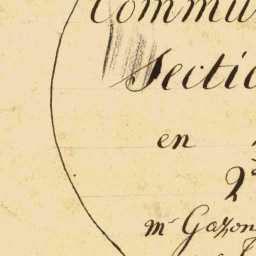 Commu
Sectio
en
2
mr Gazon